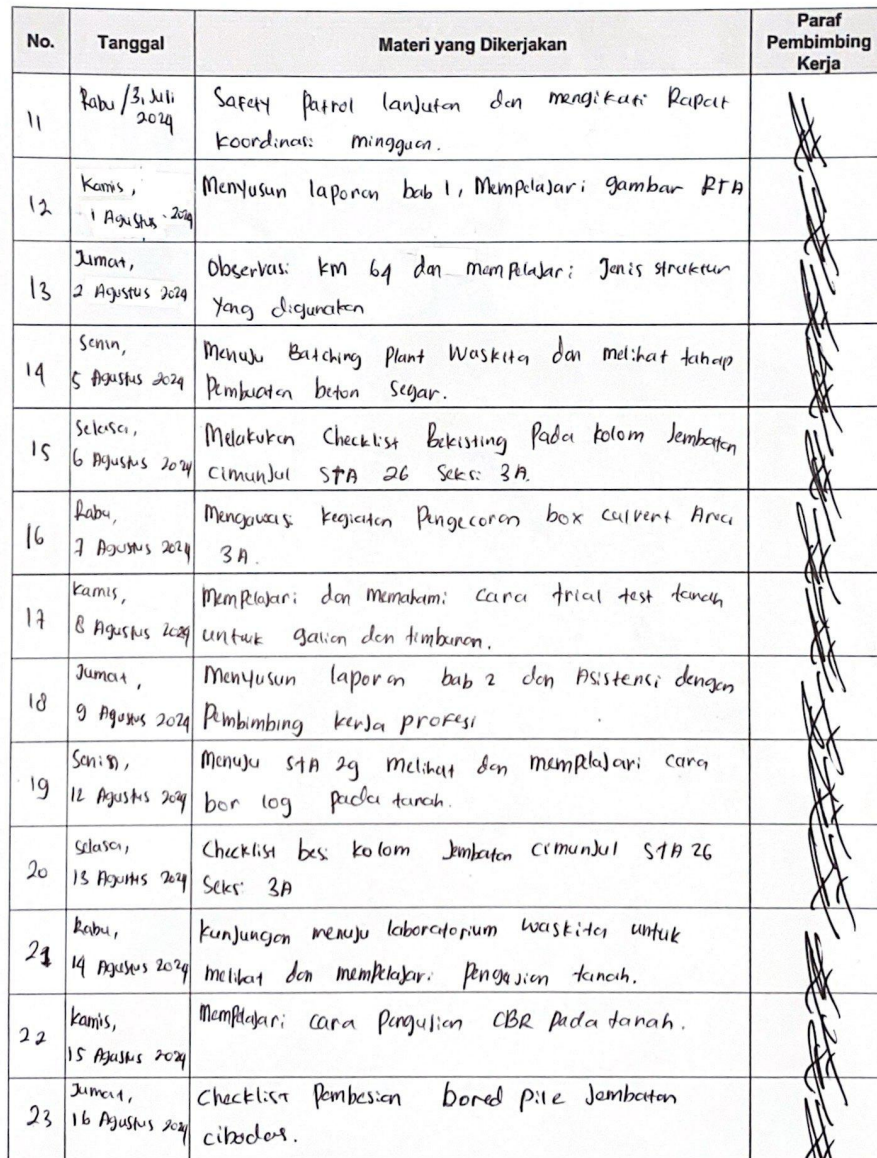 No. Tanggal Materi yang Dikerjakan Paraf Pembimbing Kerja
11 Rabu /31 Juli 2024 Safety Patrol lanjutan dan mengikuti Rapat
koordinasi mingguan.
12 Kamis, 1 Agustus 2024 Menyusun laporan bab 1, Mempelajari gambar RTA
13 Jumat, 2 Agustus 2024 Observasi km 64 dan mempelajari Jenis struktur
Yang digunakan
14 Senin, 5 Agustus 2024 Menuju Batching Plant Waskita dan melihat tahap
Pembuatan beton segar.
15 Selasa, 6 Agustus 2024 Melakukan Checklist Bekisting Pada kolom Jembatan
cimunjul STA 26 Seksi 3A.
16 Rabu, 7 Agustus 2024 Mengawasi kegiatan Pengecoran box culvert Area
3A.
17 Kamis, 8 Agustus 2024 Mempelajari dan memahami cara trial test tanah
untuk galian dan timbunan.
18 Jumat, 9 Agustus 2024 Menyusun laporan bab 2 dan Asistensi dengan
Pembimbing kerja profesi
19 Senin, 12 Agustus 2024 Menuju STA 29 melihat dan mempelajari cara
bor log pada tanah.
20 Selasa, 13 Agustus 2024 Checklist besi kolom Jembatan cimunjul STA 26
Seksi 3A
21 Rabu, 14 Agustus 2024 Kunjungan menuju laboratorium waskita untuk
melihat dan mempelajari pengujian tanah.
22 Kamis, 15 Agustus 2024 Mempelajari cara pengujian CBR pada tanah.
23 Jumat, 16 Agustus 2024 Checklist Pembesian bored pile Jembatan
cibodas.